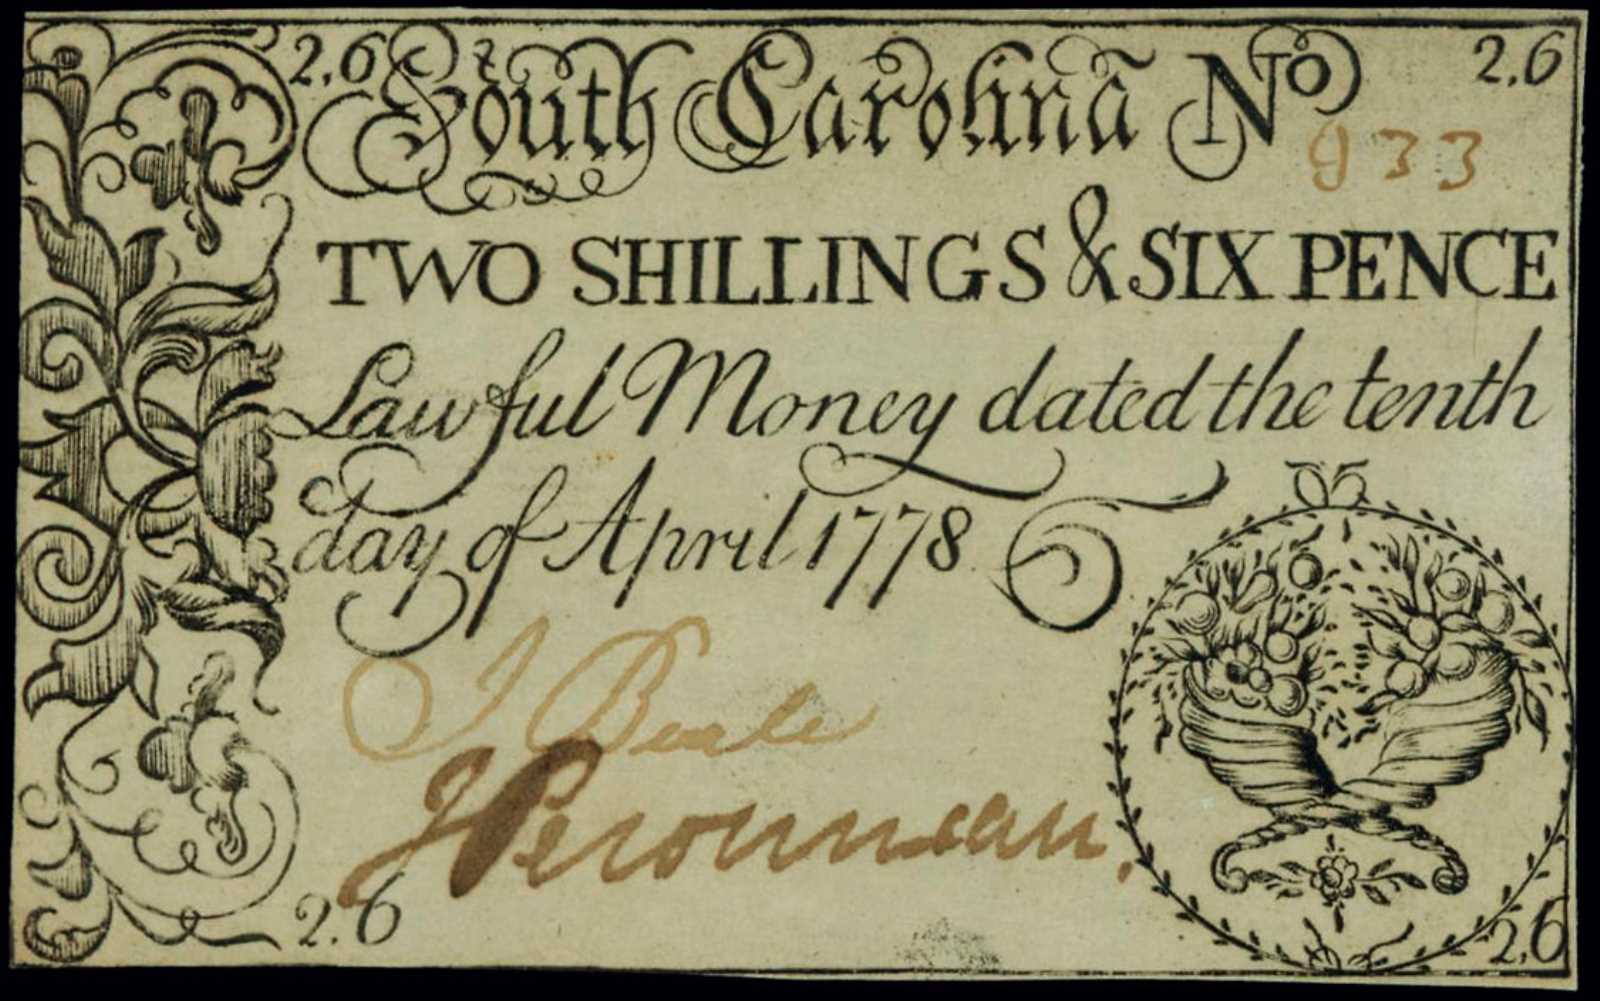 2.6 South Carolina No 2.6
933
TWO SHILLINGS & SIX PENCE
Lawful Money dated the tenth
day of April 1778
J Beale
J Peronneau.
2.6 2.6